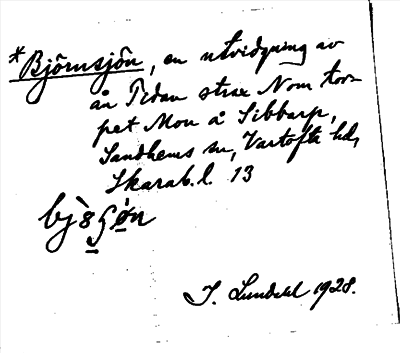 *Björnsjön, en utvidgning av
ån Tidan strax N om tor-
pet Mon å Sibbarp,
Sandhems sn, Vartofta hd,
Skarab. l. 13
I. Lundahl 1928.